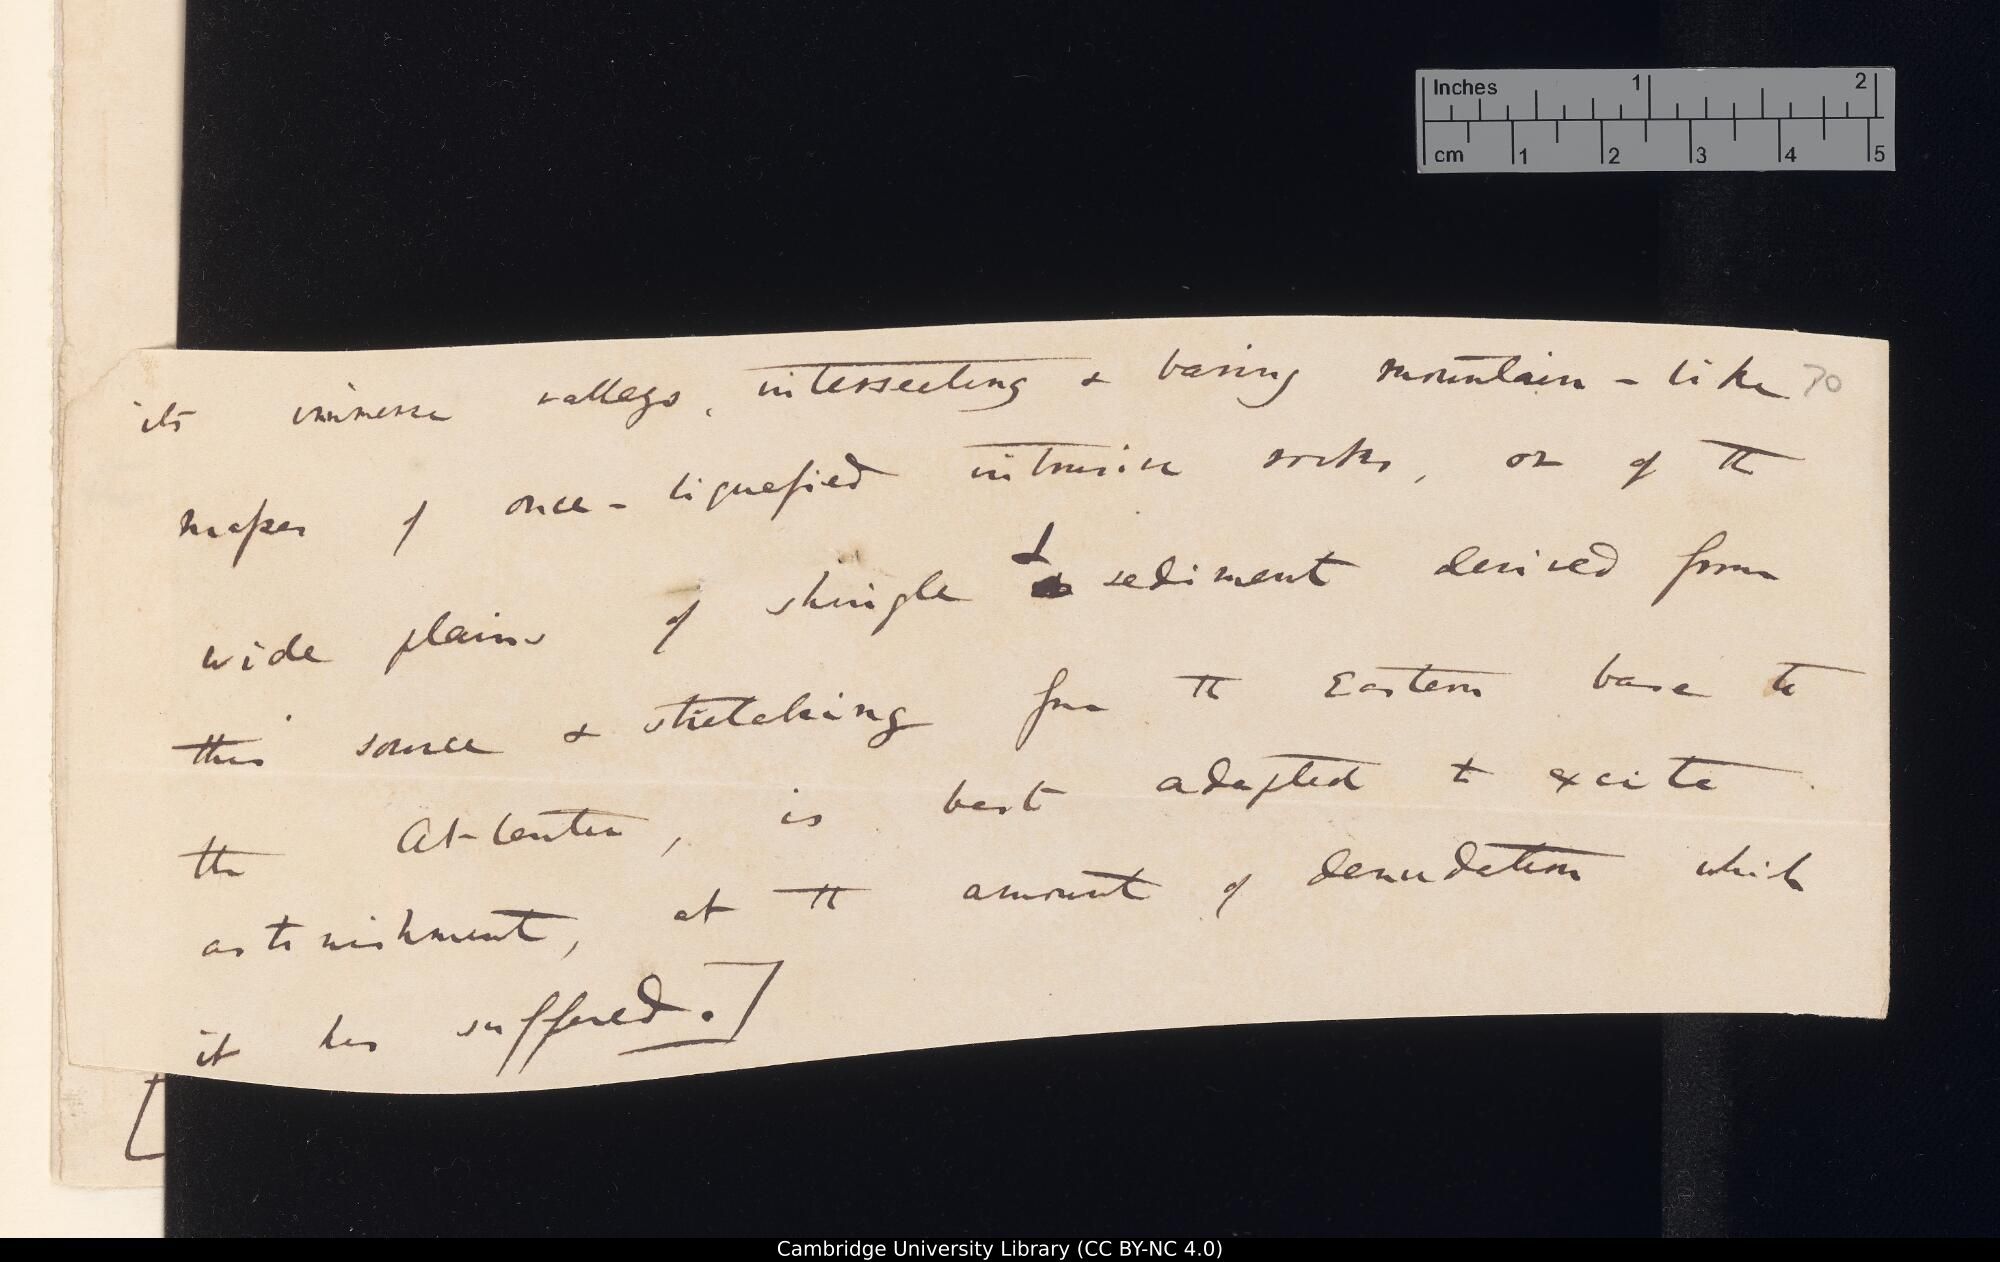 Inches 1 2
cm 1 2 3 4 5
its immense valleys, intersecting & baring mountain-like 70
masses of once-liquefied intrusive rocks, or of the
wide plains of shingle & sediment derived from
this source & stretching from the Eastern base to
the Atlantic, is best adapted to excite
astonishment, at the amount of denudation which
it has suffered.]
[
Cambridge University Library (CC BY-NC 4.0)